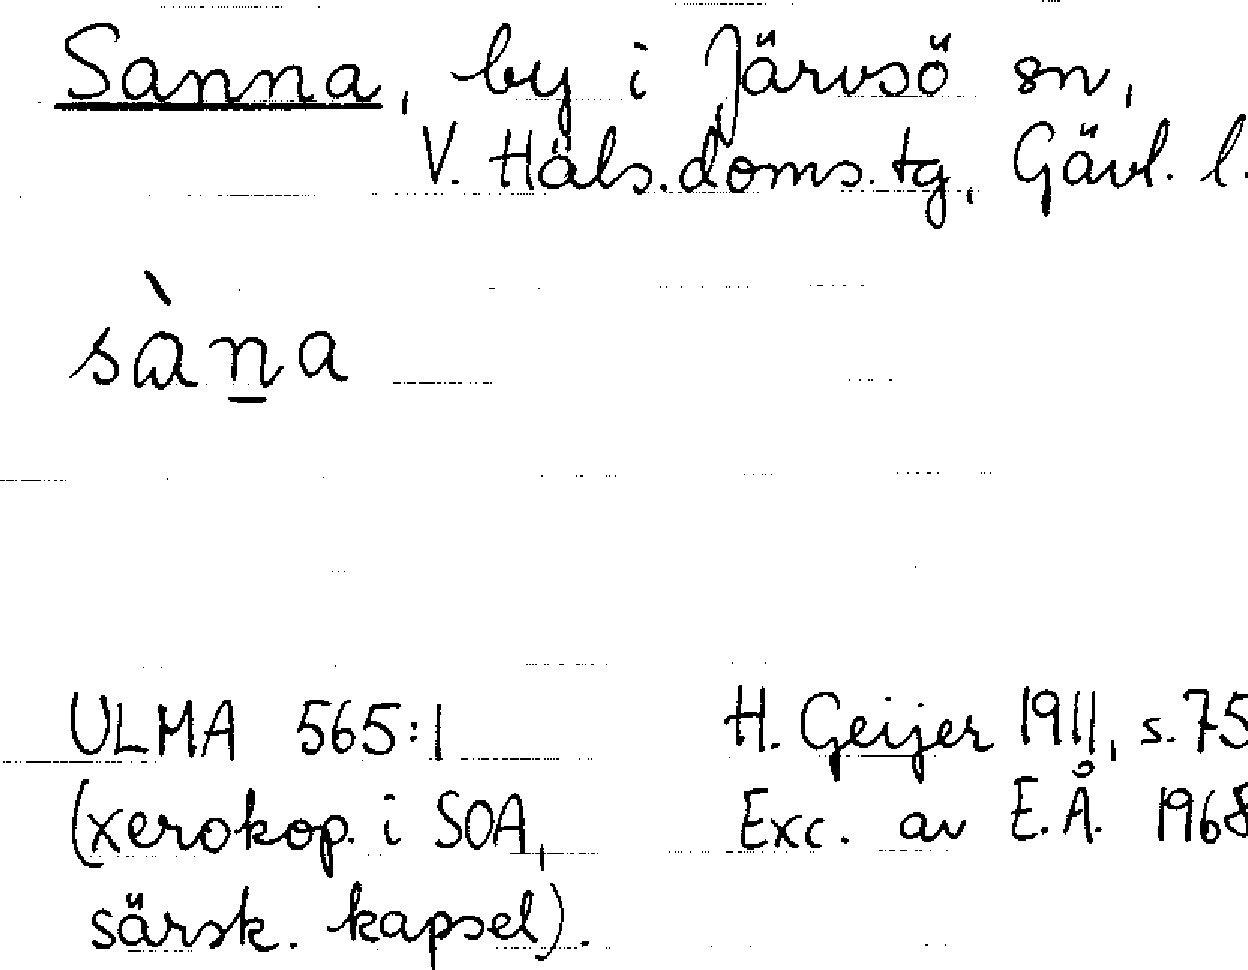 Sanna, by i Järvsö sn,
V. Häls. doms. tg, Gävl. l.
sàn̲a
ULMA 565:1 H. Geijer 1911, s. 75
(xerokop. i SOA, Exc. av E.Å. 1968
särsk. kapsel).